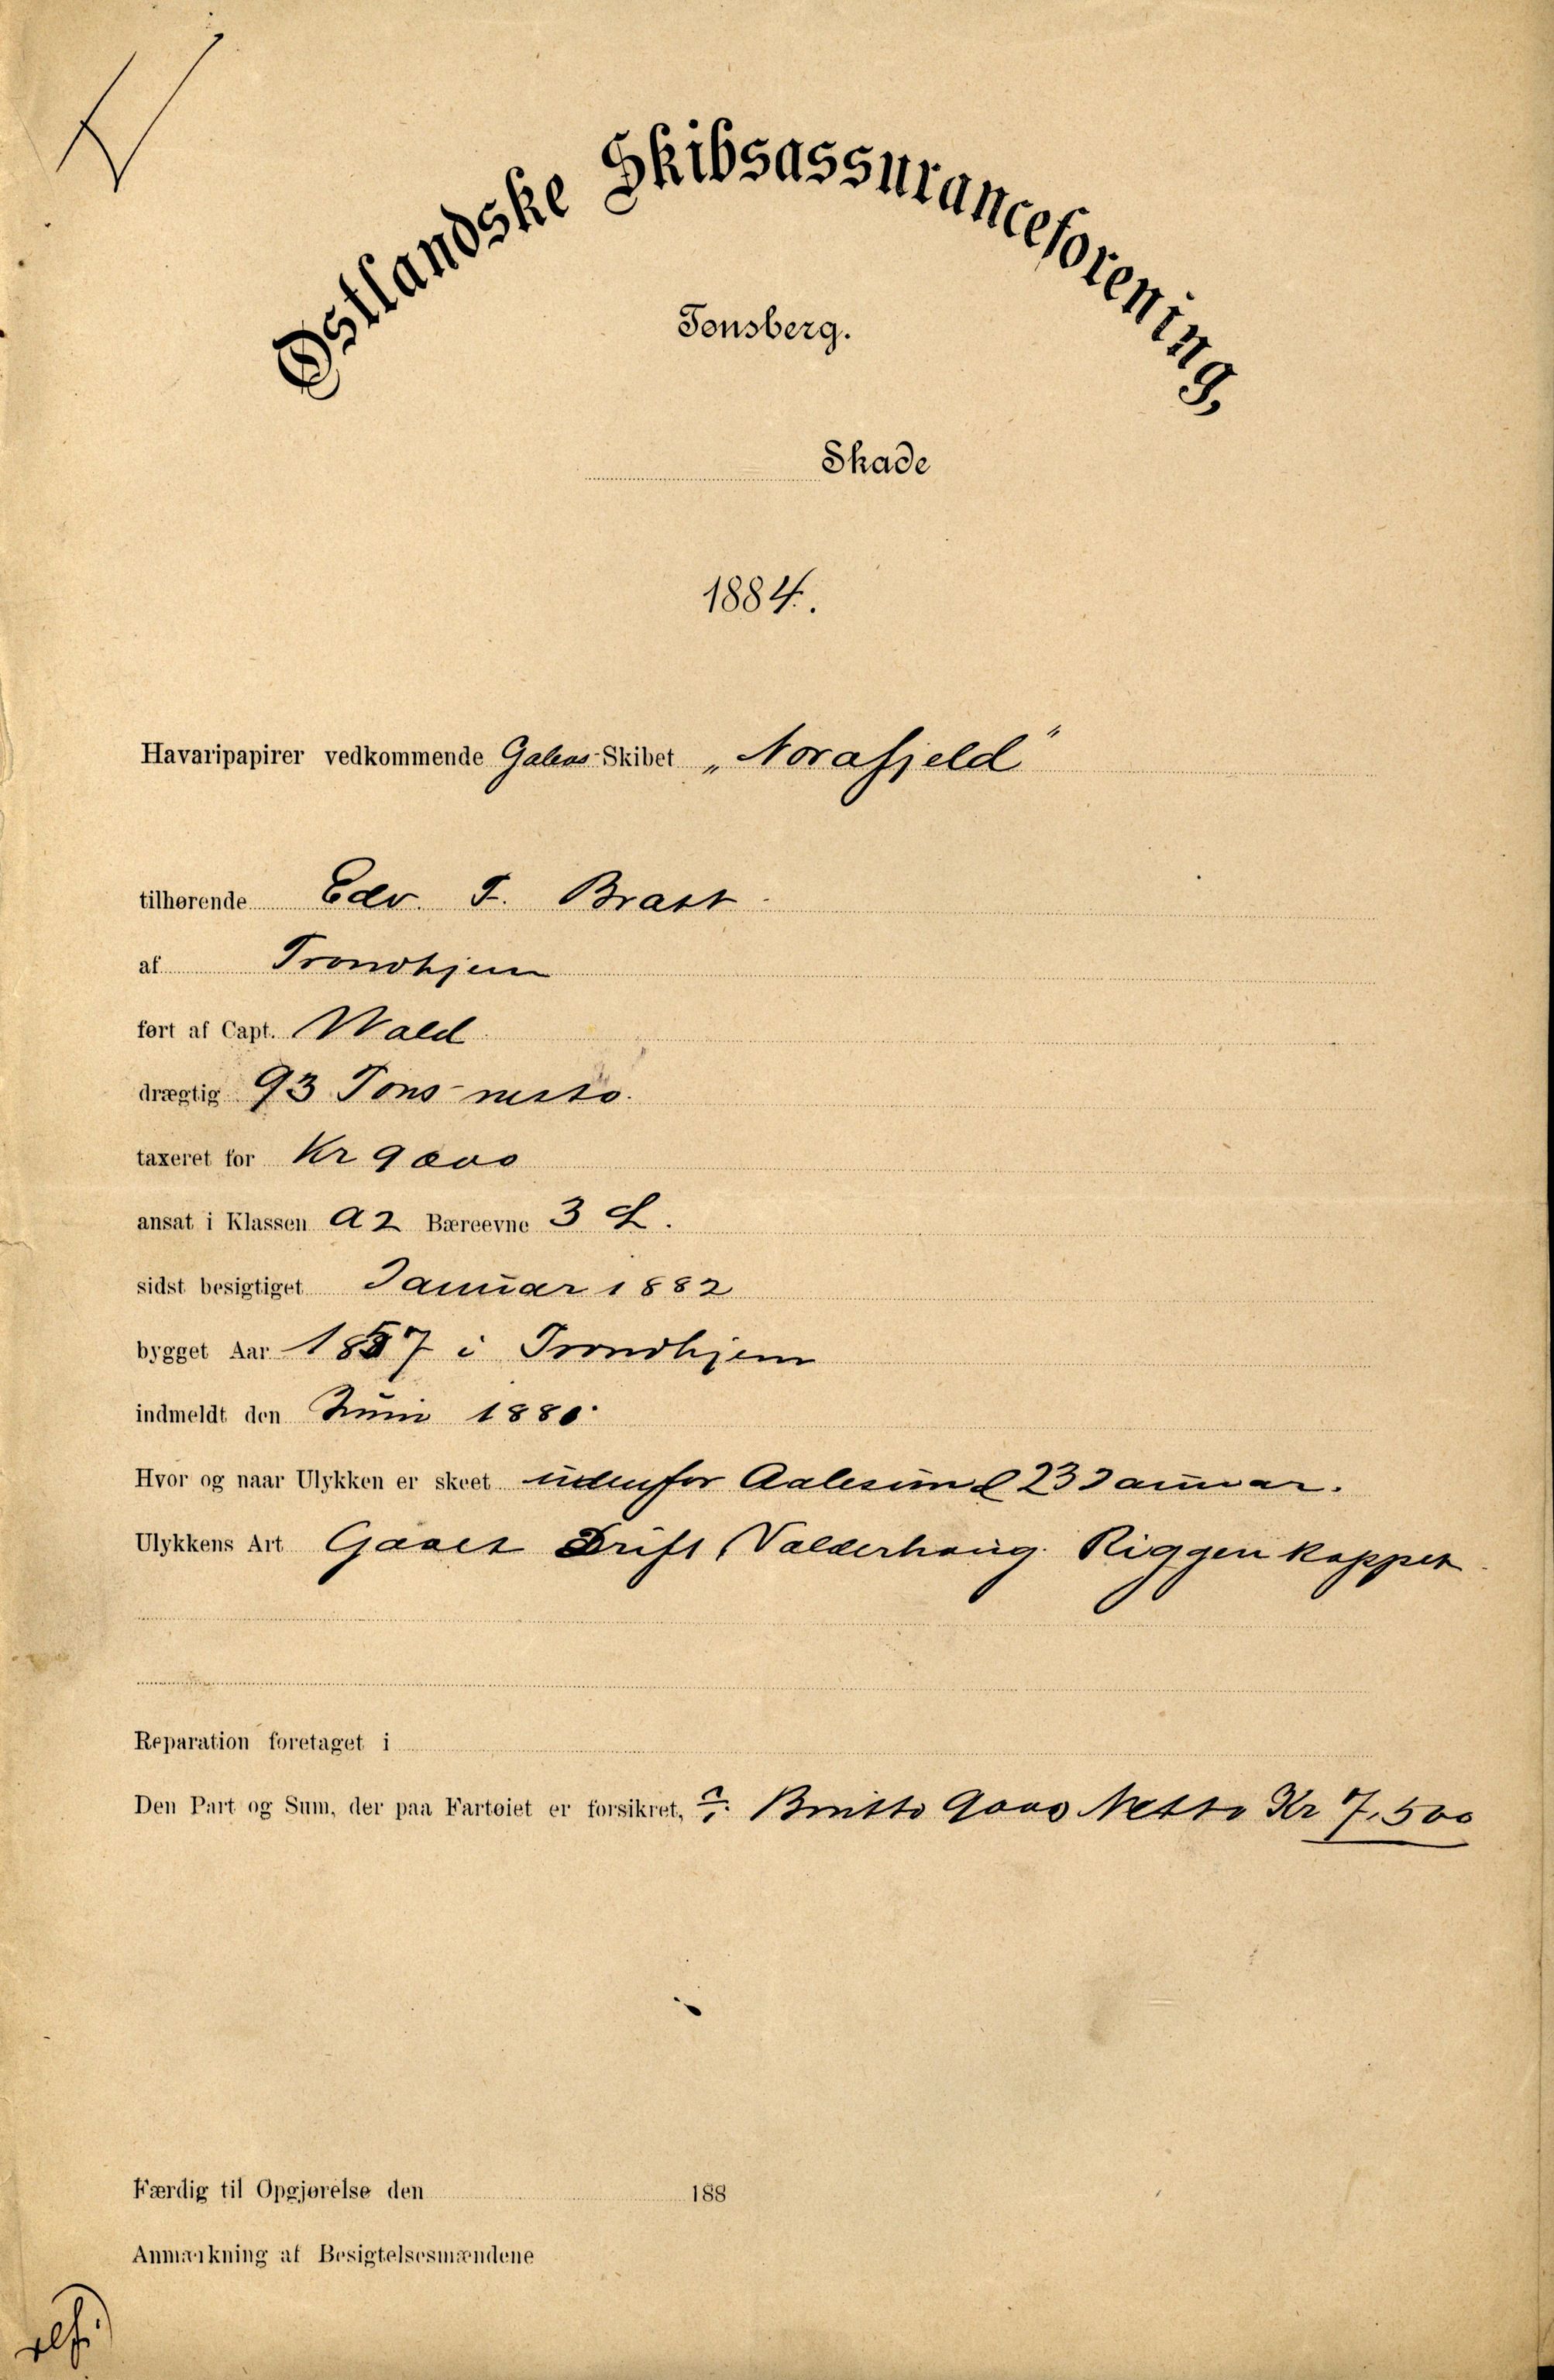 Østlandske Skibsassuranceforening,
Tønsberg.
Skade
1884.
Havaripapirer vedkommende Galeas-Skibet „Norafjeld"
tilhørende Edv. F. Bratt
af Trondhjem
ført af Capt. Wald
drægtig 93 Tons netto.
taxeret for Kr 9000
ansat i Klassen A2 Bæreevne 3 L.
sidst besigtiget Januar 1882
bygget Aar 1857 i Trondhjem
indmeldt den Juni 1880
Hvor og naar Ulykken er skeet udenfor Aalesund 23 Januar.
Ulykkens Art Gaaet Drift, Valderhaug. Riggen kappet.
Reparation foretaget i
Den Part og Sum, der paa Fartøiet er forsikret, Brutto 9000 Netto Kr 7,500
Færdig til Opgjørelse den 188
Anmærkning af Besigtelsesmændene